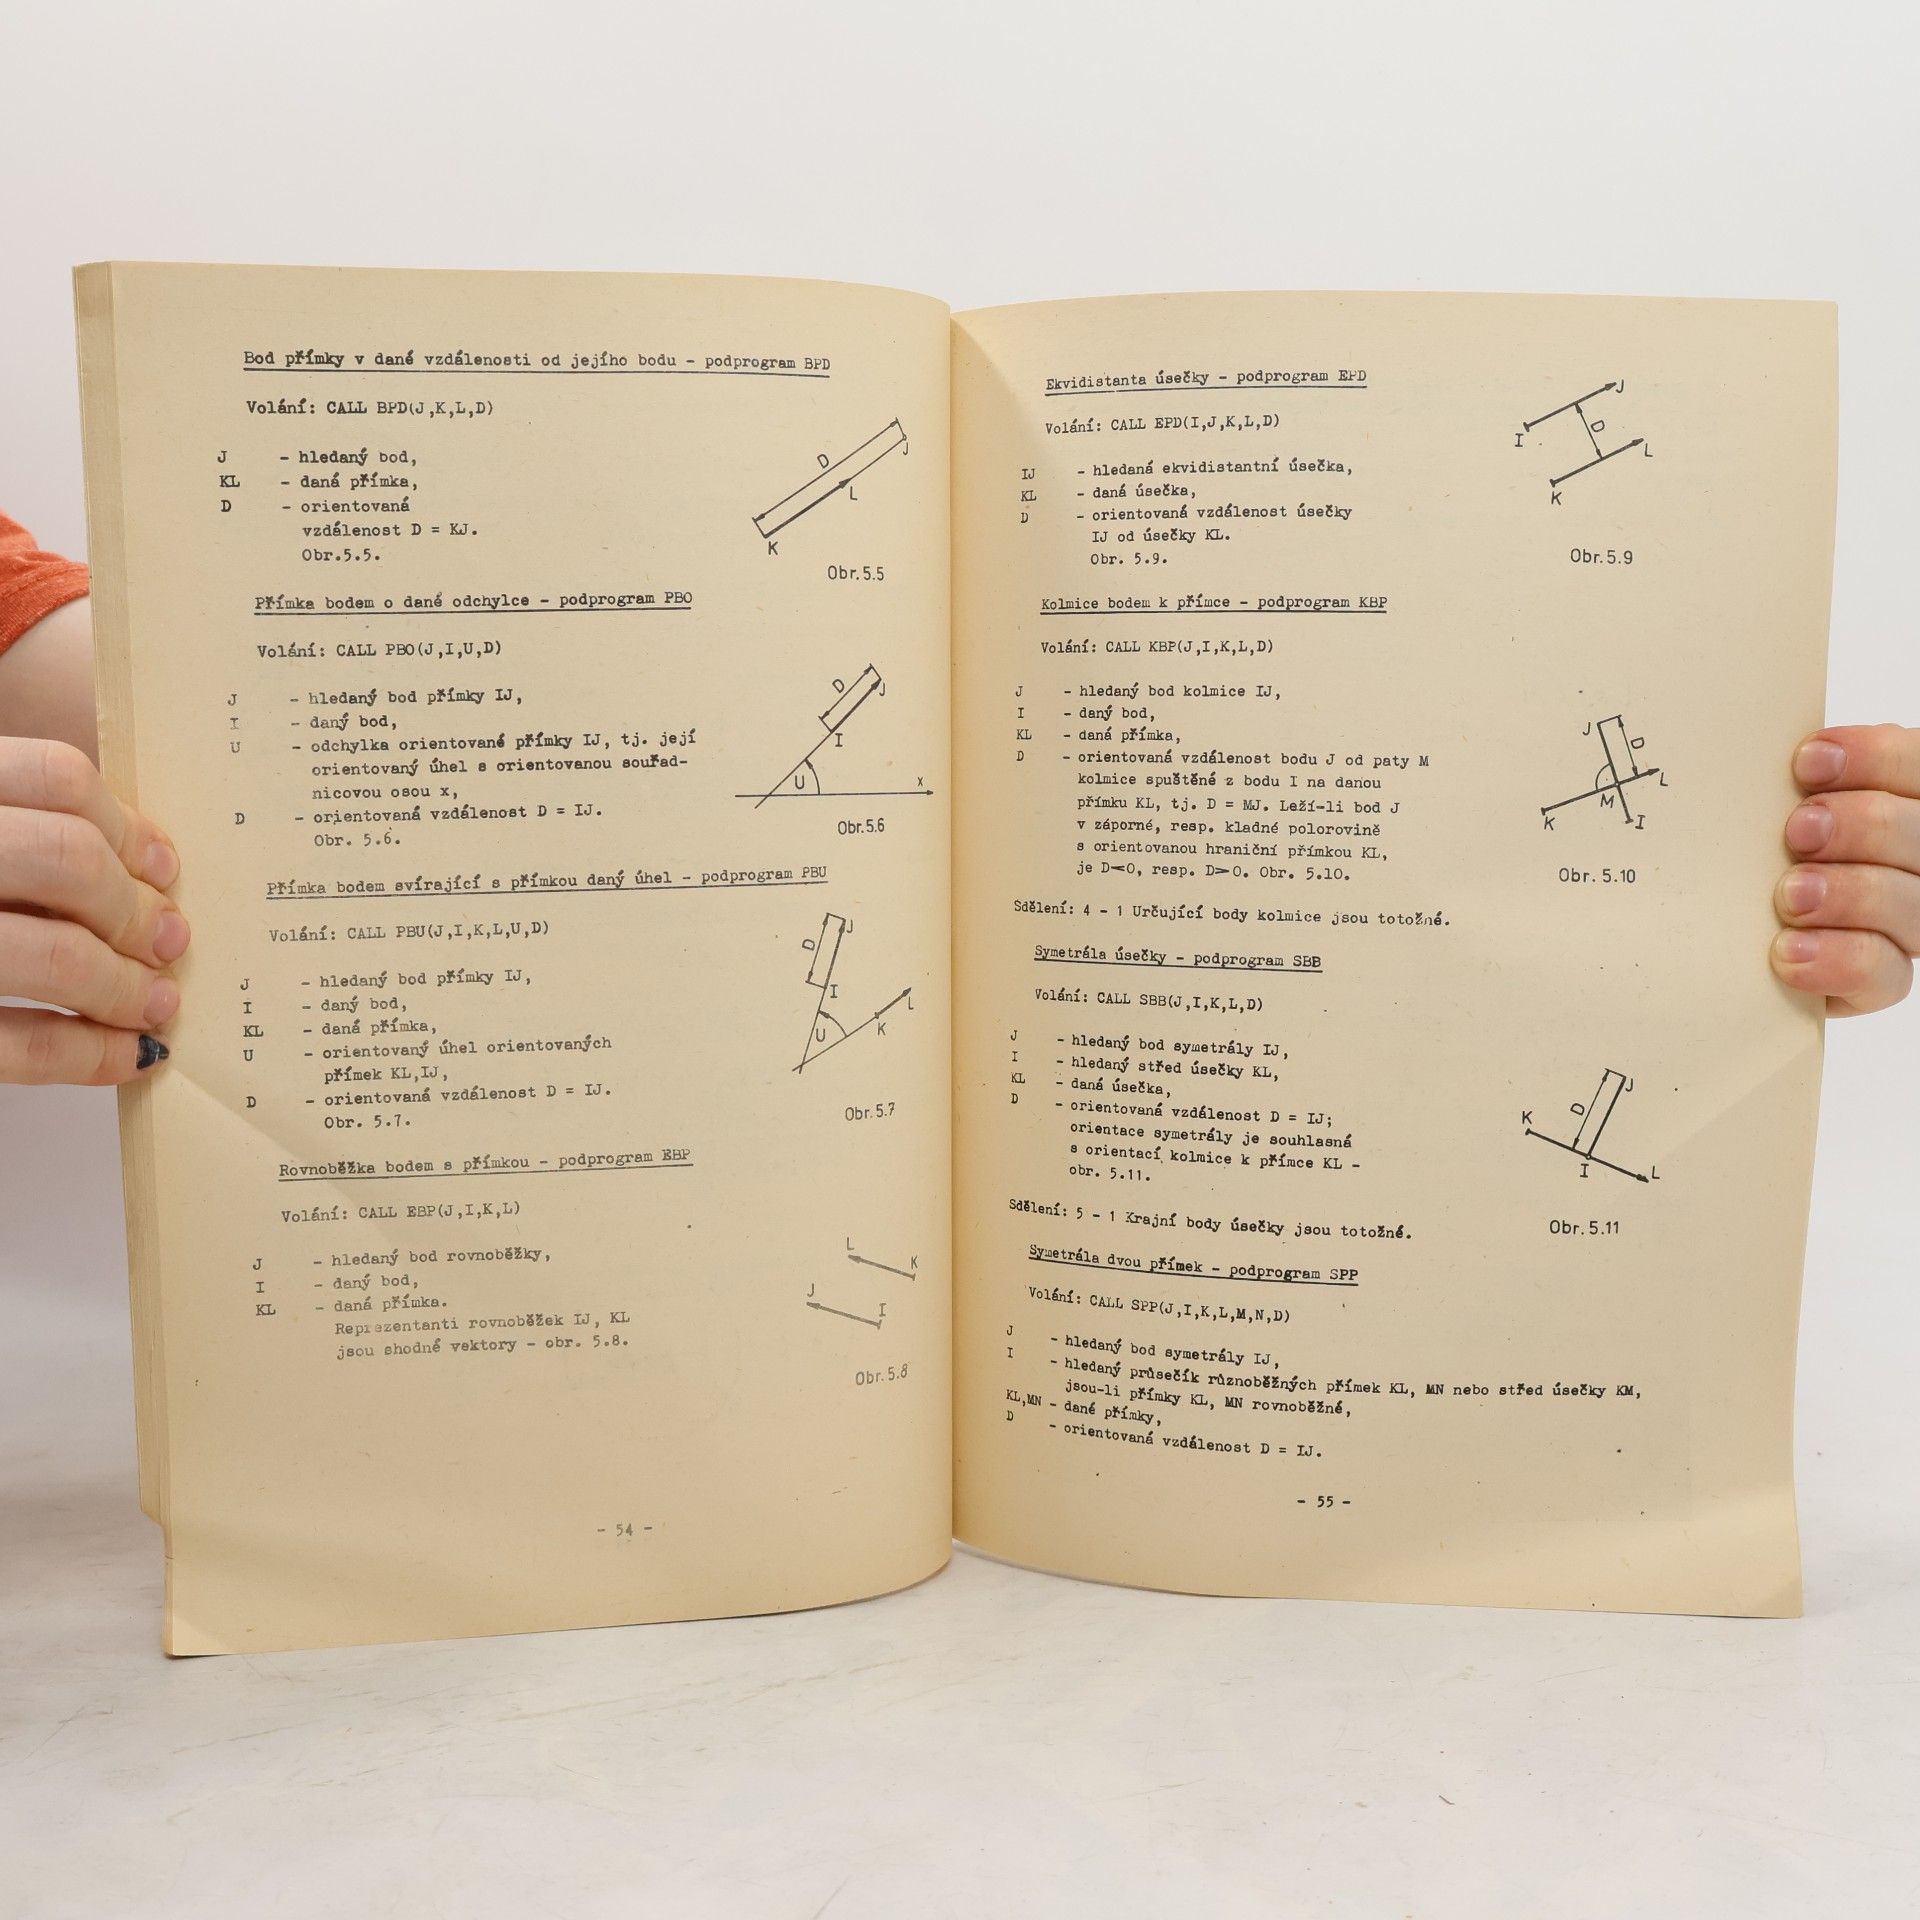 Bod přímky v dané vzdálenosti od jejího bodu - podprogram BPD
Volání: CALL BPD(J,K,L,D)
J - hledaný bod,
KL - daná přímka,
D - orientovaná
vzdálenost D = KJ.
Obr.5.5.
D
J
L
K
Obr.5.5
Přímka bodem o dané odchylce - podprogram PBO
Volání: CALL PBO(J,I,U,D)
J - hledaný bod přímky IJ,
I - daný bod,
U - odchylka orientované přímky IJ, tj. její
orientovaný úhel s orientovanou souřad-
nicovou osou x,
D - orientovaná vzdálenost D = IJ.
Obr. 5.6.
D
J
I
U
x
Obr.5.6
Přímka bodem svírající s přímkou daný úhel - podprogram PBU
Volání: CALL PBU(J,I,K,L,U,D)
J - hledaný bod přímky IJ,
I - daný bod,
KL - daná přímka,
U - orientovaný úhel orientovaných
přímek KL,IJ,
D - orientovaná vzdálenost D = IJ.
Obr. 5.7.
D
J
I
L
U
K
Obr.5.7
Rovnoběžka bodem s přímkou - podprogram EBP
Volání: CALL EBP(J,I,K,L)
J - hledaný bod rovnoběžky,
I - daný bod,
KL - daná přímka.
Reprezentanti rovnoběžek IJ, KL
jsou shodné vektory - obr. 5.8.
L
K
J
I
Obr.5.8
- 54 -
Ekvidistanta úsečky - podprogram EPD
Volání: CALL EPD(I,J,K,L,D)
IJ - hledaná ekvidistantní úsečka,
KL - daná úsečka,
D - orientovaná vzdálenost úsečky
IJ od úsečky KL.
Obr. 5.9.
J
I
D
L
K
Obr.5.9
Kolmice bodem k přímce - podprogram KBP
Volání: CALL KBP(J,I,K,L,D)
J - hledaný bod kolmice IJ,
I - daný bod,
KL - daná přímka,
D - orientovaná vzdálenost bodu J od paty M
kolmice spuštěné z bodu I na danou
přímku KL, tj. D = MJ. Leží-li bod J
v záporné, resp. kladné polorovině
s orientovanou hraniční přímkou KL,
je D<0, resp. D>0. Obr. 5.10.
J
D
L
M
K
I
Obr. 5.10
Sdělení: 4 - 1 Určující body kolmice jsou totožné.
Symetrála úsečky - podprogram SBB
Volání: CALL SBB(J,I,K,L,D)
J - hledaný bod symetrály IJ,
I - hledaný střed úsečky KL,
KL - daná úsečka,
D - orientovaná vzdálenost D = IJ;
orientace symetrály je souhlasná
s orientací kolmice k přímce KL -
obr. 5.11.
J
D
K
I
L
Obr. 5.11
Sdělení: 5 - 1 Krajní body úsečky jsou totožné.
Symetrála dvou přímek - podprogram SPP
Volání: CALL SPP(J,I,K,L,M,N,D)
J - hledaný bod symetrály IJ,
I - hledaný průsečík různoběžných přímek KL, MN nebo střed úsečky KM,
jsou-li přímky KL, MN rovnoběžné,
KL,MN - dané přímky,
D - orientovaná vzdálenost D = IJ.
- 55 -